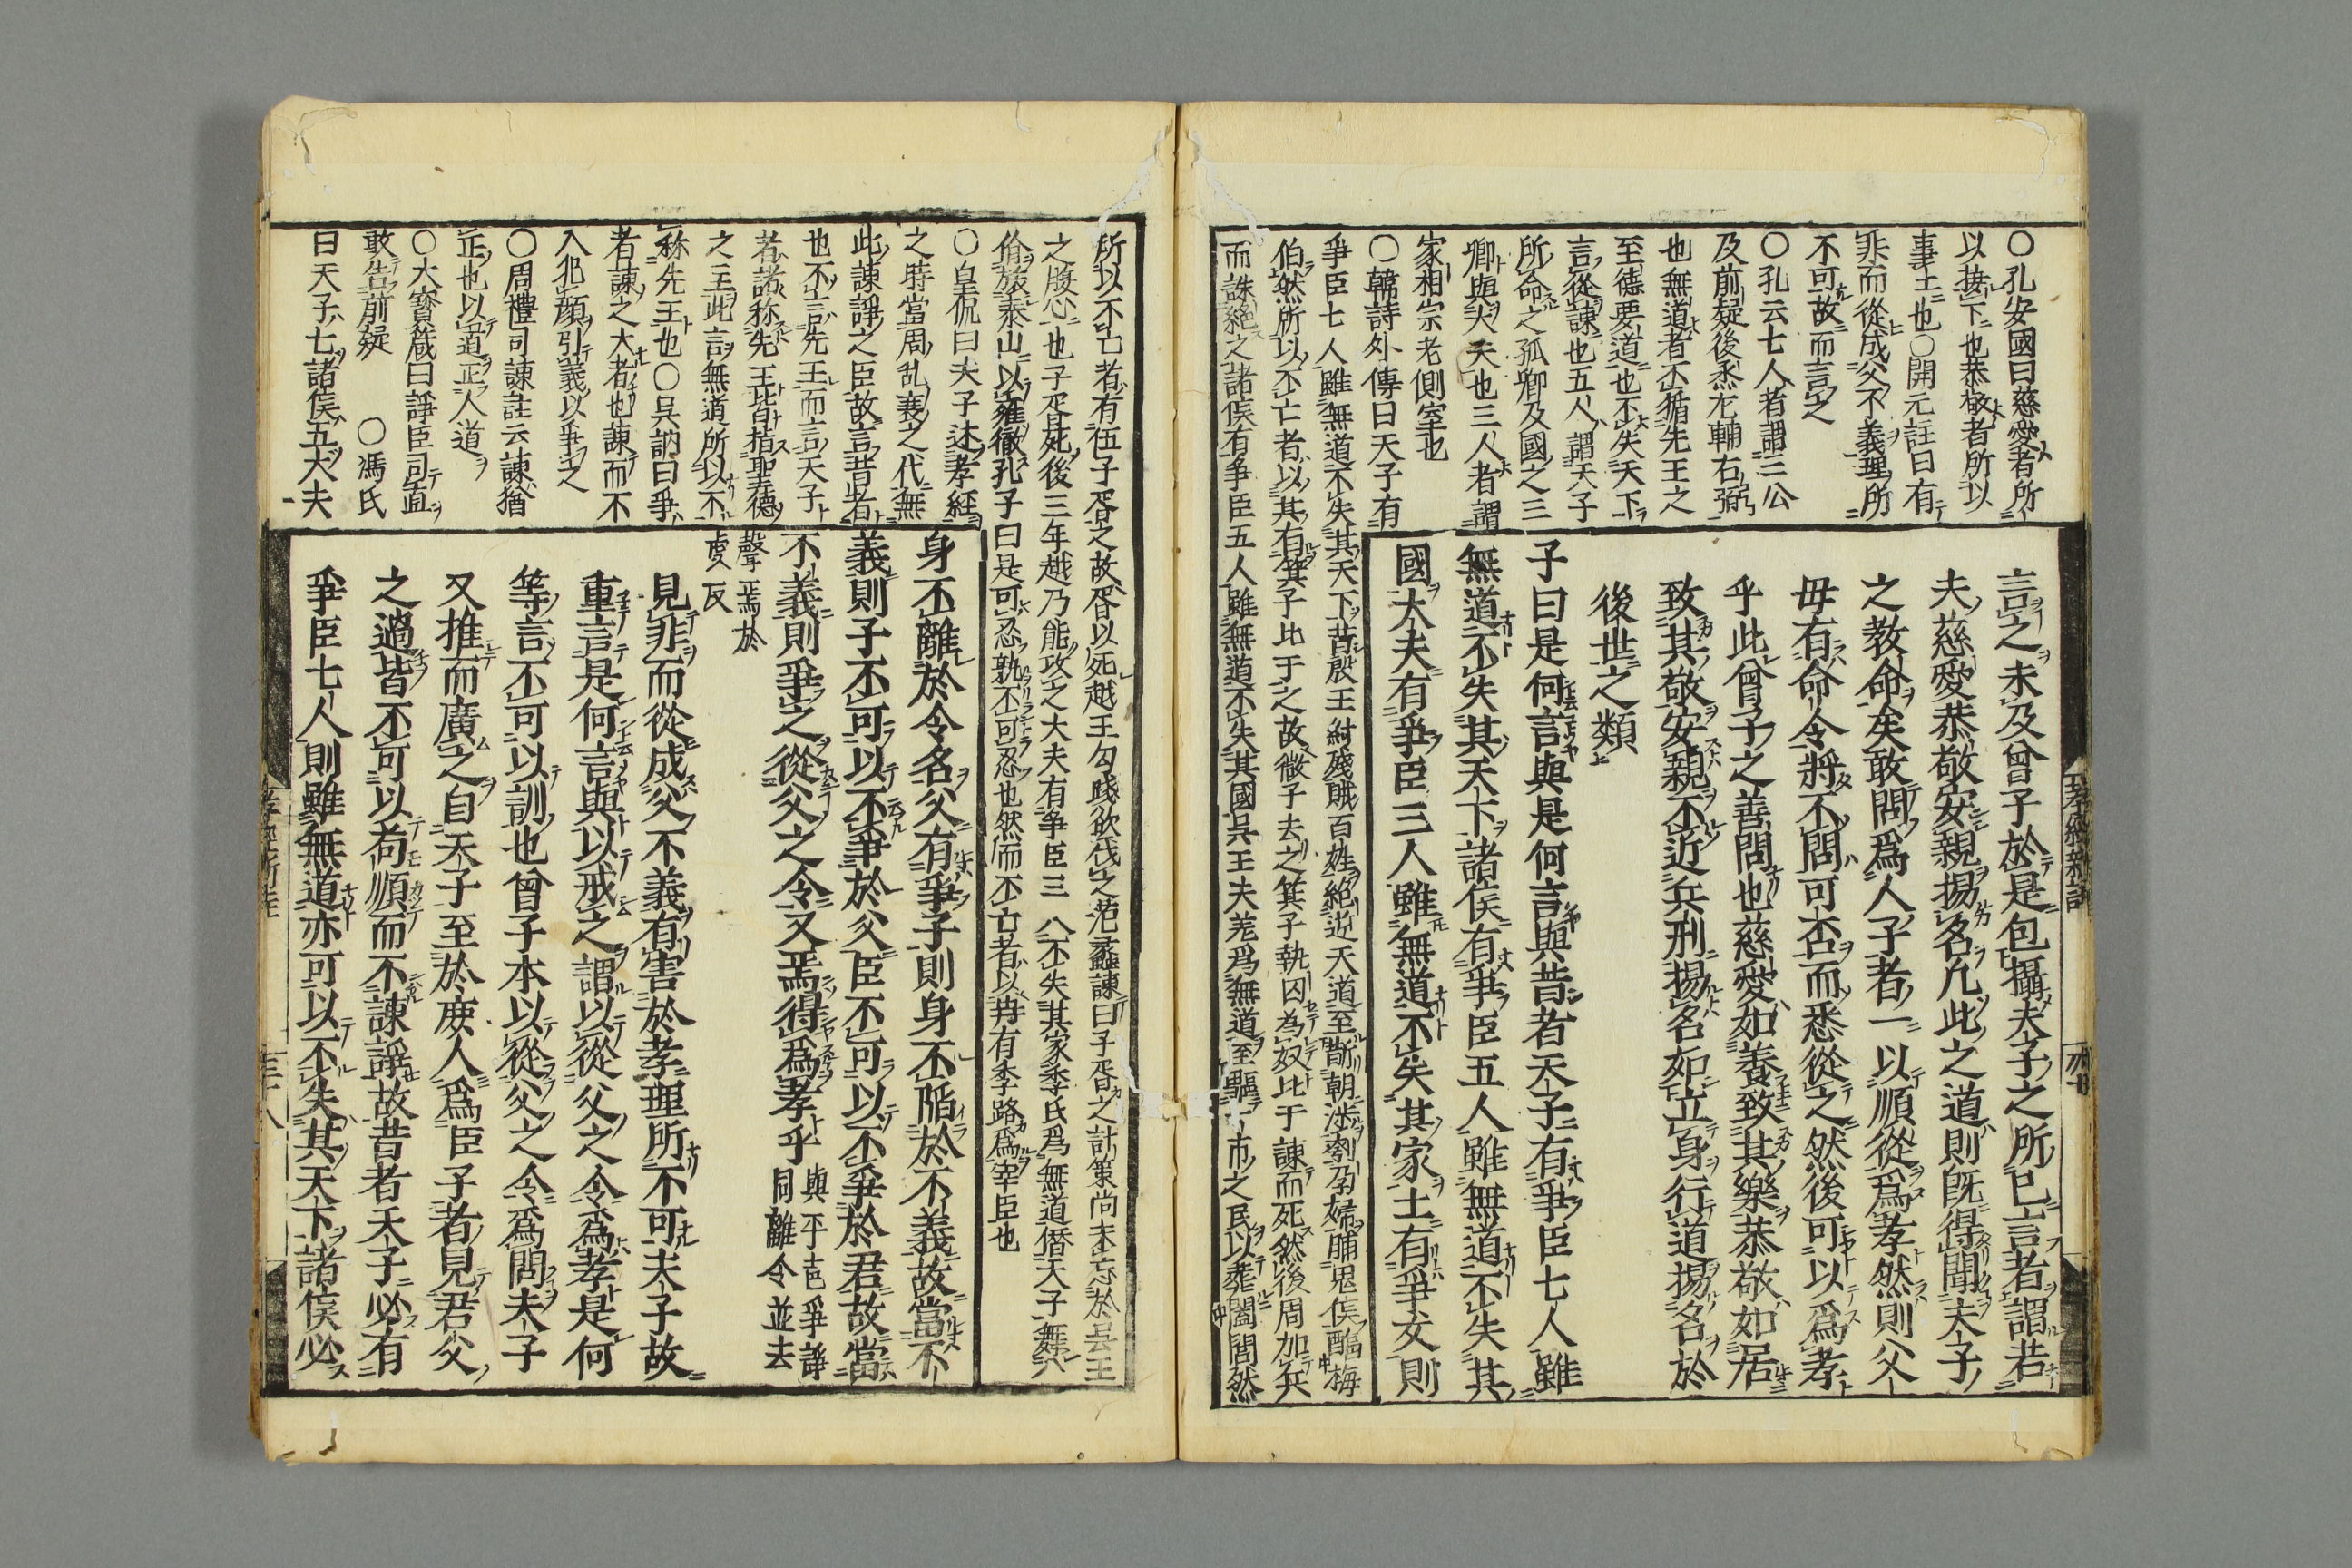 〇孔安國曰慈愛者所
以接下也恭敬者所以
事上也〇開元註曰有
非而從成父不義理所
不可故而言之
〇孔云七人者謂三公
及前疑後烝左輔右弼
也無道者不循先王之
至德要道也不失天下
言從諫也五人謂天子
所命之孤卿及國之三
卿與大夫也三人者謂
家相宗老側室也
〇韓詩外傳曰天子有
爭臣七人雖無道不失其天下昔殷王紂殘賊百姓絕逆天道至斮朝涉刳孕婦脯鬼侯醢梅
伯然所以不亡者以其有箕子比干之故微子去之箕子執囚為奴比干諫而死然後周加兵
而誅絕之諸侯有爭臣五人雖無道不失其國吳王夫差爲無道至驅一市之民以葬闔閭然
言之未及曾子於是包攝夫子之所已言者謂若
夫慈愛恭敬安親揚名凡此之道則既得聞夫子
之教命矣敢問爲人子者一以順從爲孝然則父
毋有命令將不問可否而悉從之然後可以爲孝
乎此曾子之善問也慈愛如養致其樂恭敬如居
致其敬安親不近兵刑揚名如立身行道揚名於
後世之類
子曰是何言與是何言與昔者天子有爭臣七人雖
無道不失其天下諸侯有爭臣五人雖無道不失其
國大夫有爭臣三人雖無道不失其家士有爭友則
所以不亡者有伍子胥之故胥以死越王勾踐欲伐之范蠡諫曰子胥之計策尚未忘於吳王
之腹心也子胥死後三年越乃能攻之大夫有爭臣三人不失其家季氏爲無道僭天子舞八
佾旅泰山以雍徹孔子曰是可忍孰不可忍也然而不亡者以冉有季路爲宰臣也
〇皇侃曰夫子述孝經
之時當周乱衰之代無
此諫諍之臣故言昔者
也不言先王而言天子
者諸称先王皆指聖德
之主此言無道所以不
称先王也〇吳訥曰爭
者諫之大者也諫而不
入犯顔引義以爭之
〇周禮司諫註云諫猶
正也以道正人道
〇大寶箴曰諍臣司直
敢告前疑　〇馮氏
曰天子七諸侯五大夫
身不離於令名父有爭子則身不陷於不義故當不
義則子不可以不爭於父臣不可以不爭於君故當
不義則爭之從父之令又焉得爲孝乎與平声爭諍
同離令並去
聲焉於
虔反
見非而從成父不義有害於孝理所不可夫子故
重言是何言與以戒之謂以從父之令爲孝是何
等言不可以訓也曾子本以從父之令爲問夫子
又推而廣之自天子至於庶人爲臣子者見君父
之過皆不可以苟順而不諫諍故昔者天子必有
爭臣七人則雖無道亦可以不失其天下諸侯必